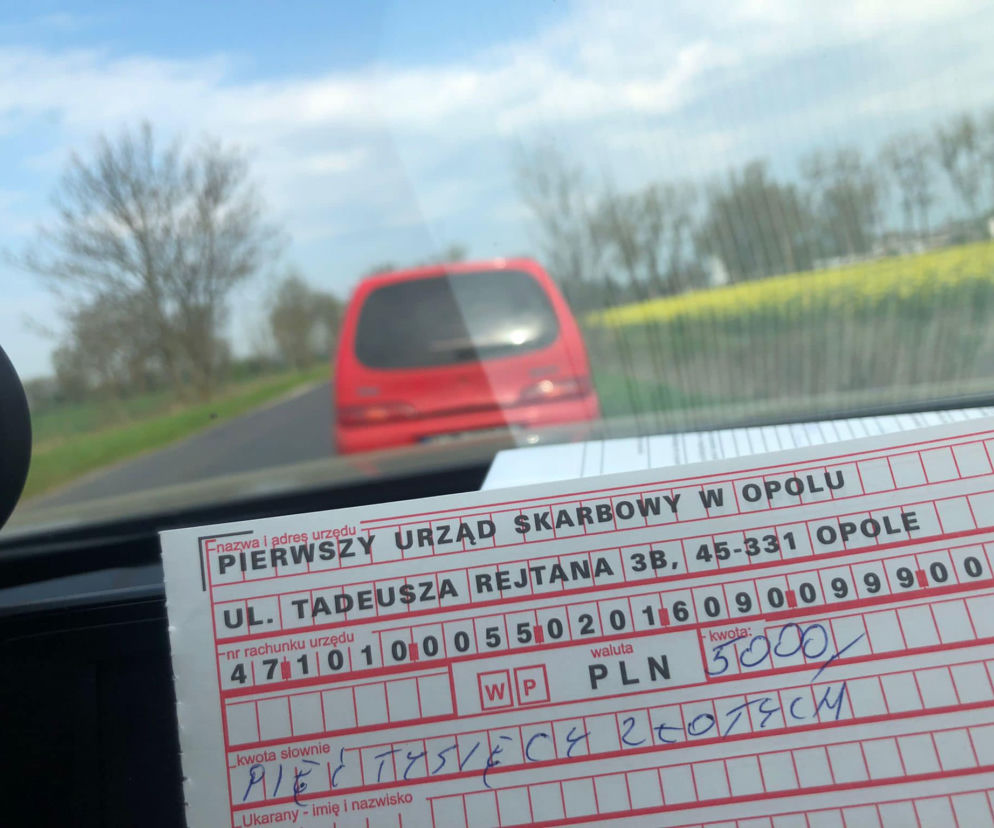 nazwa i adres urzędu
PIERWSZY URZĄD SKARBOWY W OPOLU
UL. TADEUSZA REJTANA 3B, 45-331 OPOLE
nr rachunku urzędu
47 1010 0055 0201 6090 0999 00
W P
waluta
PLN
kwota:
5000/
kwota słownie
PIĘĆ TYSIĘCY ZŁOTYCH
Ukarany - imię i nazwisko